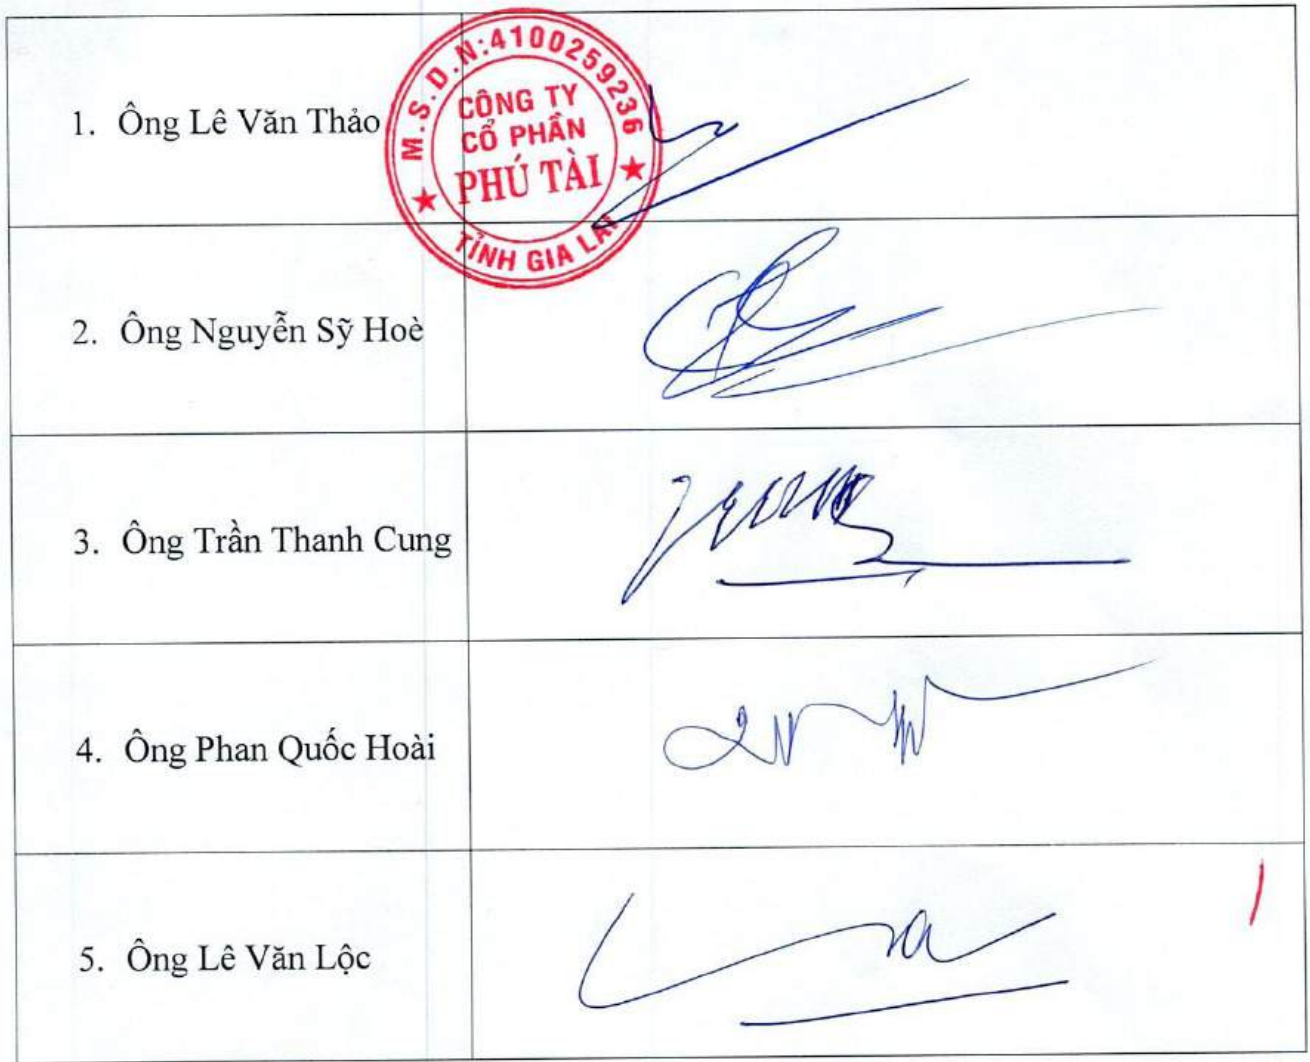 1. Ông Lê Văn Thảo
M.S.D.N:4100259236
CÔNG TY
CỔ PHẦN
PHÚ TÀI
TỈNH GIA LAI
2. Ông Nguyễn Sỹ Hoè
3. Ông Trần Thanh Cung
4. Ông Phan Quốc Hoài
5. Ông Lê Văn Lộc